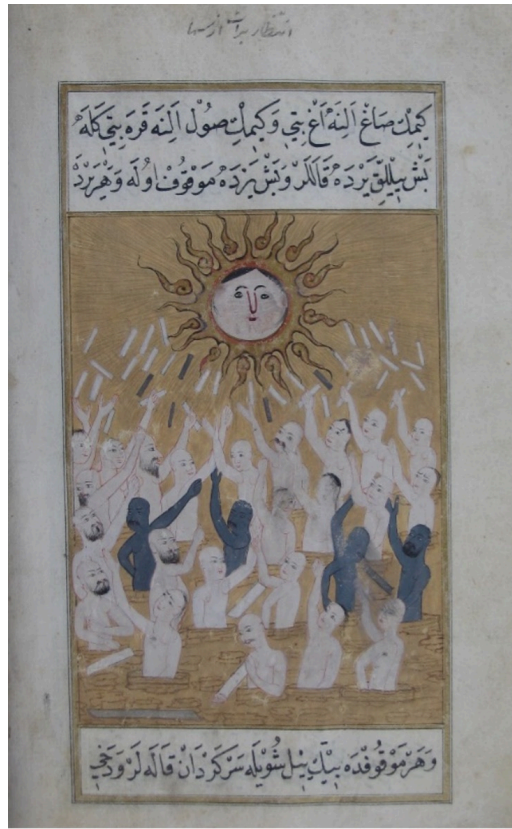 انتظار برات از
كِيمِكْ صَاغْ اَلِنَه آغْ بِتِي وَكِيمِكْ صُولْ اَلِنَه قَرَه بِتِي كَلَه
بَشْ يِيللِقْ يَرْدَه قَالَلَرْ وَبَشْ يَرْدَه مَوْقُوفْ اوُلَه وَهَرْ يَرْدَه
وَهَرْ مَوْقُوفْدَه بِيكْ يِيلْ شُويْلَه سَرْكَرْدَانْ قَالَه لَرْ وَدَخِي